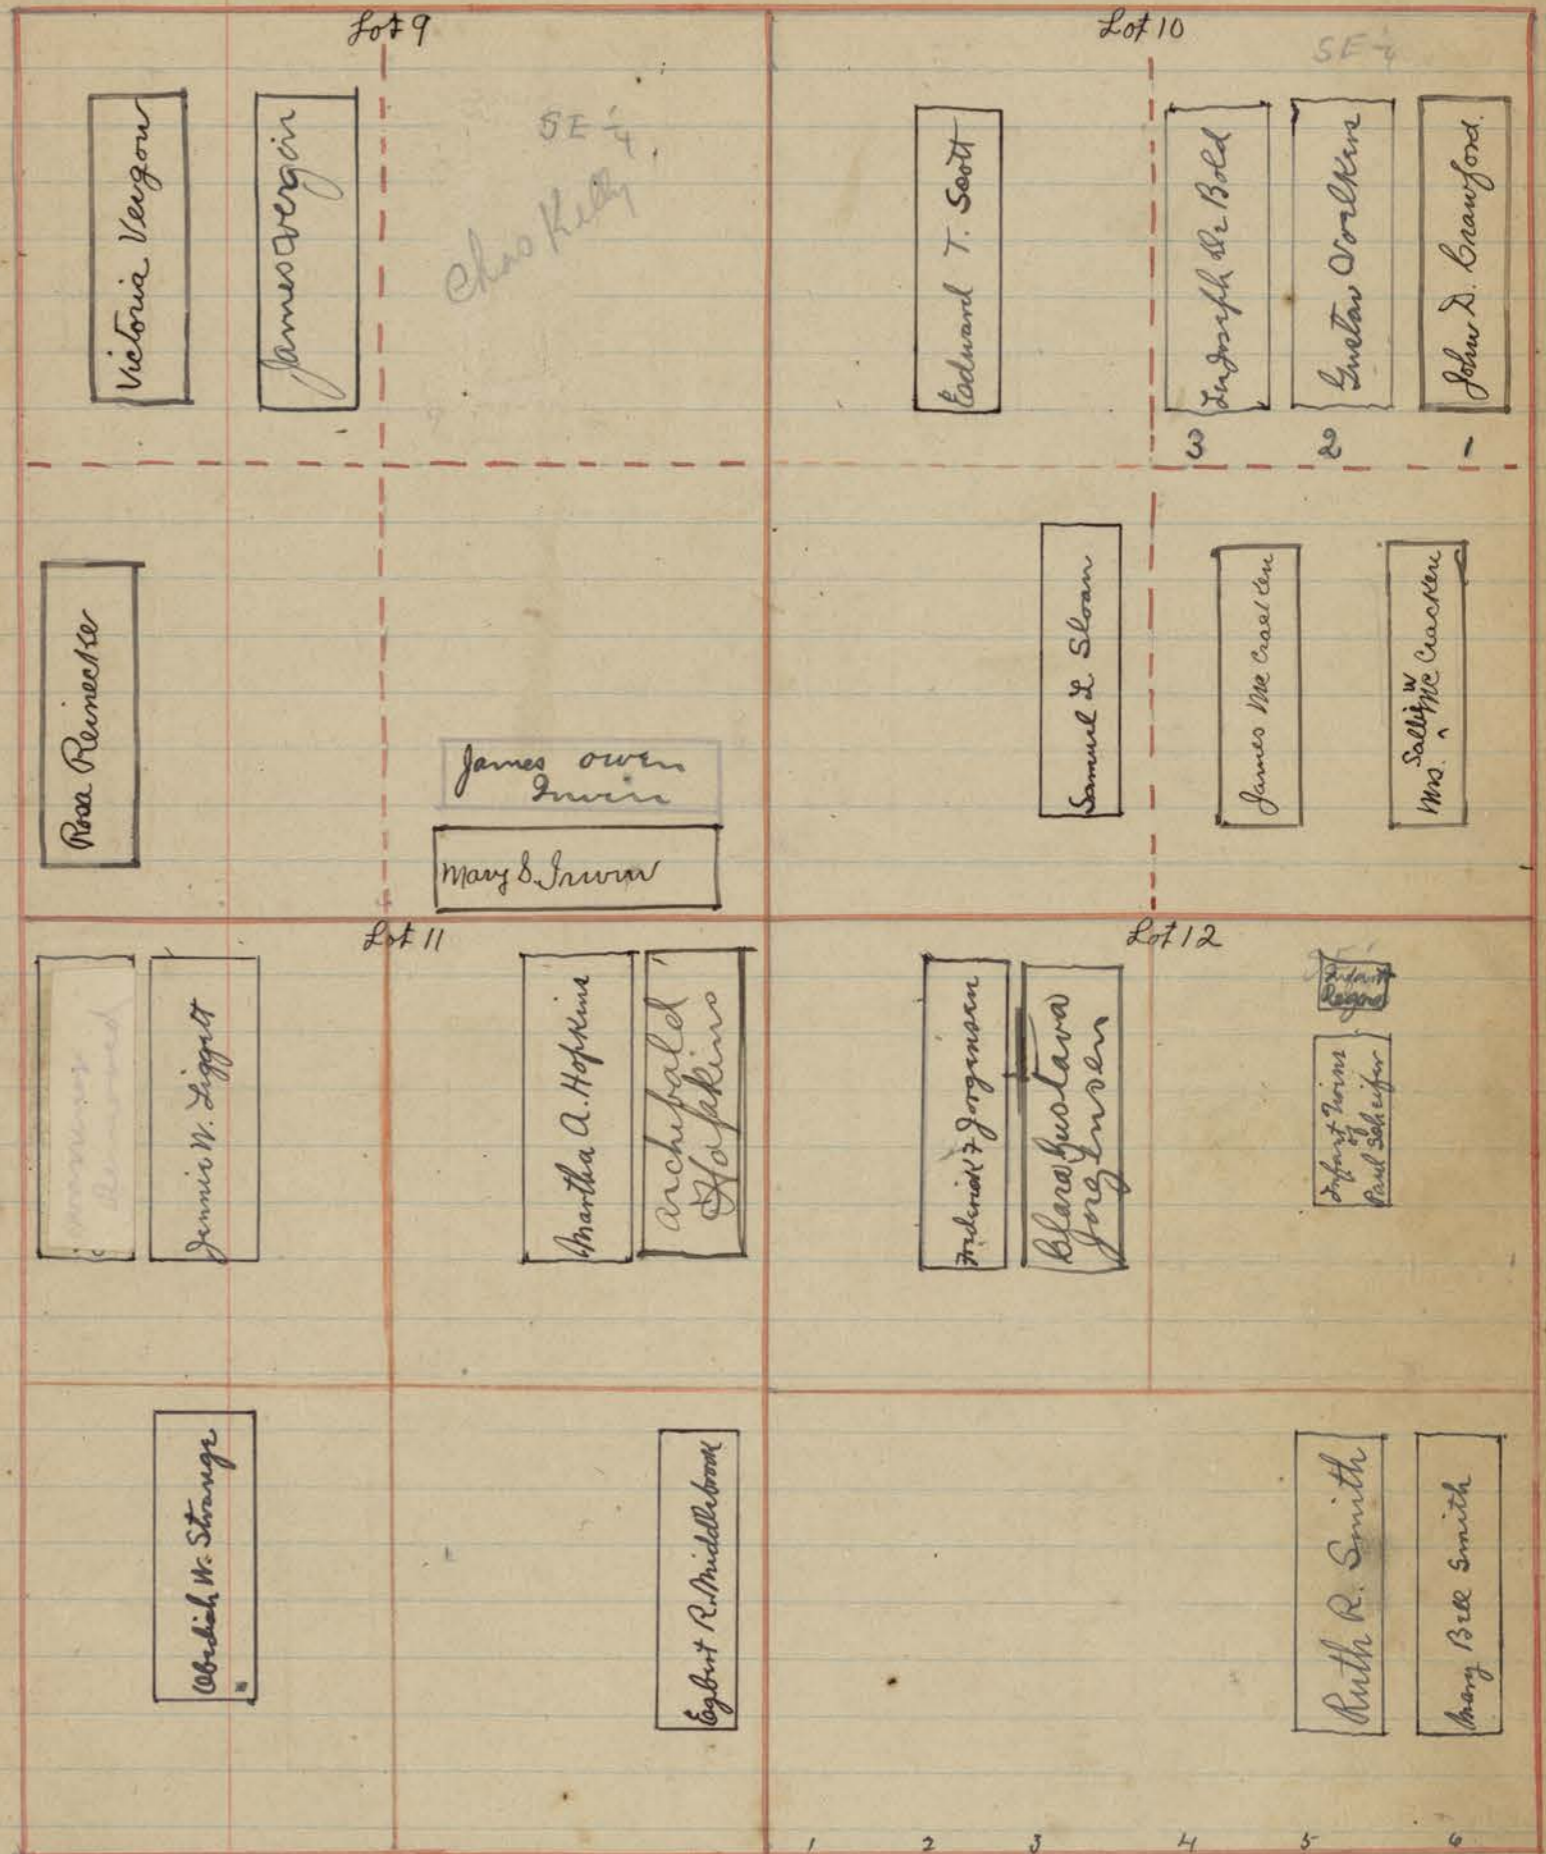 Lot 9
Victoria Vergon
James Vergin
SE 1/4
Chas Kelly
Rosa Reinecke
James Owen
Irwin
Mary S. Irwin
Lot 10
SE 1/4
Edward T. Scott
Joseph De Bold
3
Gustav
2
John D. Crawford.
1
Samuel L Sloan
James Mc Cracken
Mrs. Sallie W Mc Cracken
Lot 11
Removed
Jennie W. Liggett
Martha A. Hopkins
Archibald
Hopkins
Obediah W. Strange
Egbert R. Middlebrook
Lot 12
Frederick F Jorgensen
Clara Gustava
Jorgensen
Infant
Infant Twins
of
Paul Scheifer
Ruth R. Smith
Mary Bell Smith
1 2 3 4 5 6